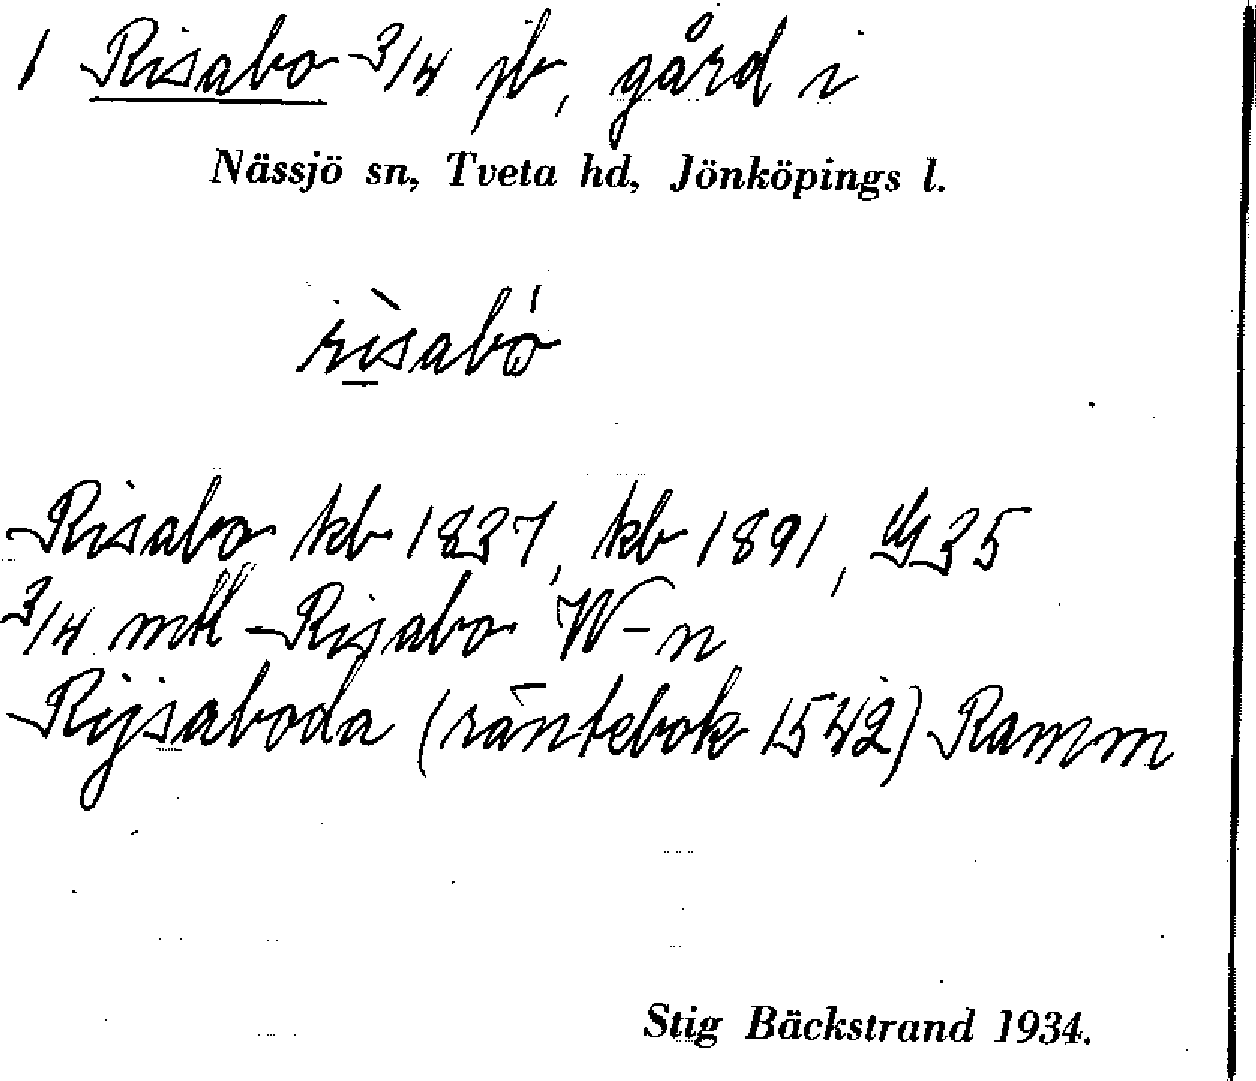 1 Risabo 3/4 jb, gård i
Nässjö sn, Tveta hd, Jönköpings l.
rìsabó
Risabo kb 1837, kb 1891, 35
3/4 mtl Risabo W-n
Rijsaboda (räntebok 1542) Ramm
Stig Bäckstrand 1934.